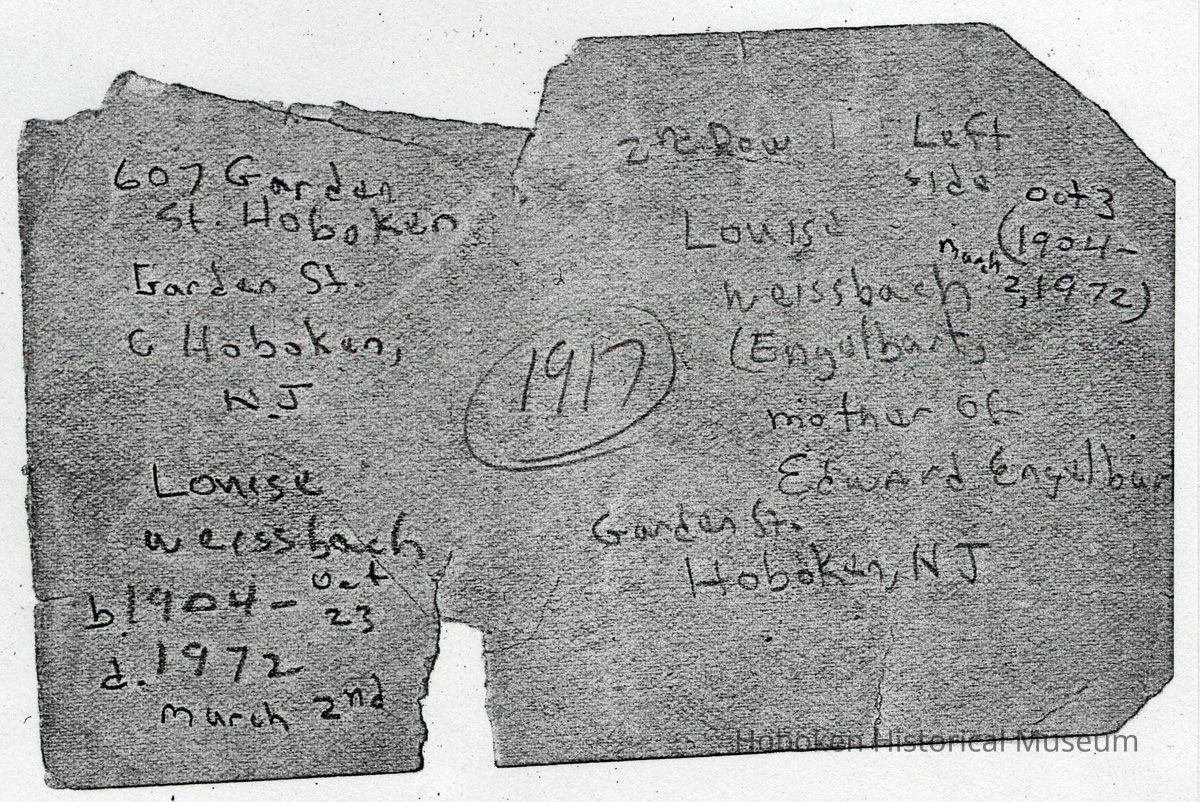 607 Garden
St. Hoboken
Garden St.
Hoboken,
N.J
Louise
weissbach
b. 1904 - Oct
23
d. 1972
March 2nd
1917
2nd Row Left
side
Louise Oct 3
(1904-
weissbach March 2, 1972)
(Engelbart,
mother of
Edward Engelbar
Garden St.
Hoboken, NJ
Hoboken Historical Museum